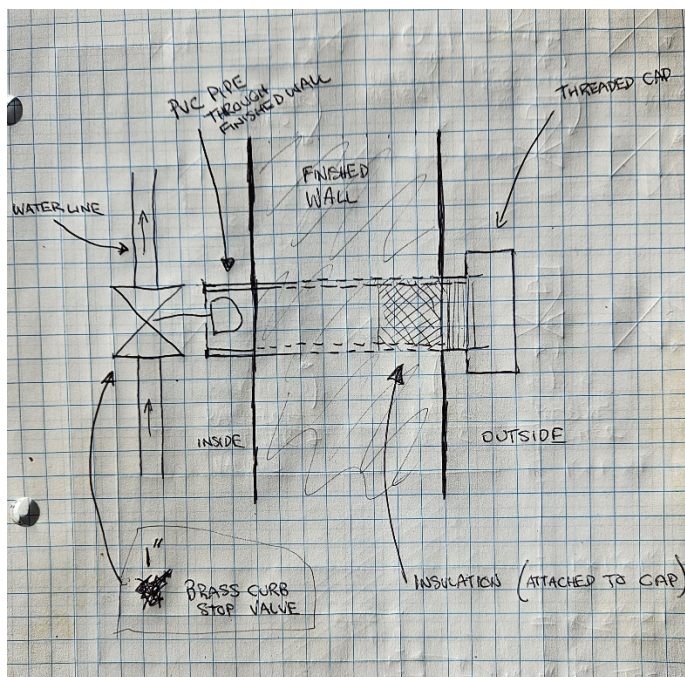 PVC PIPE
THROUGH
FINISHED WALL
THREADED CAP
FINISHED
WALL
WATER LINE
INSIDE
OUTSIDE
1"
BRASS CURB
STOP VALVE
INSULATION (ATTACHED TO CAP)